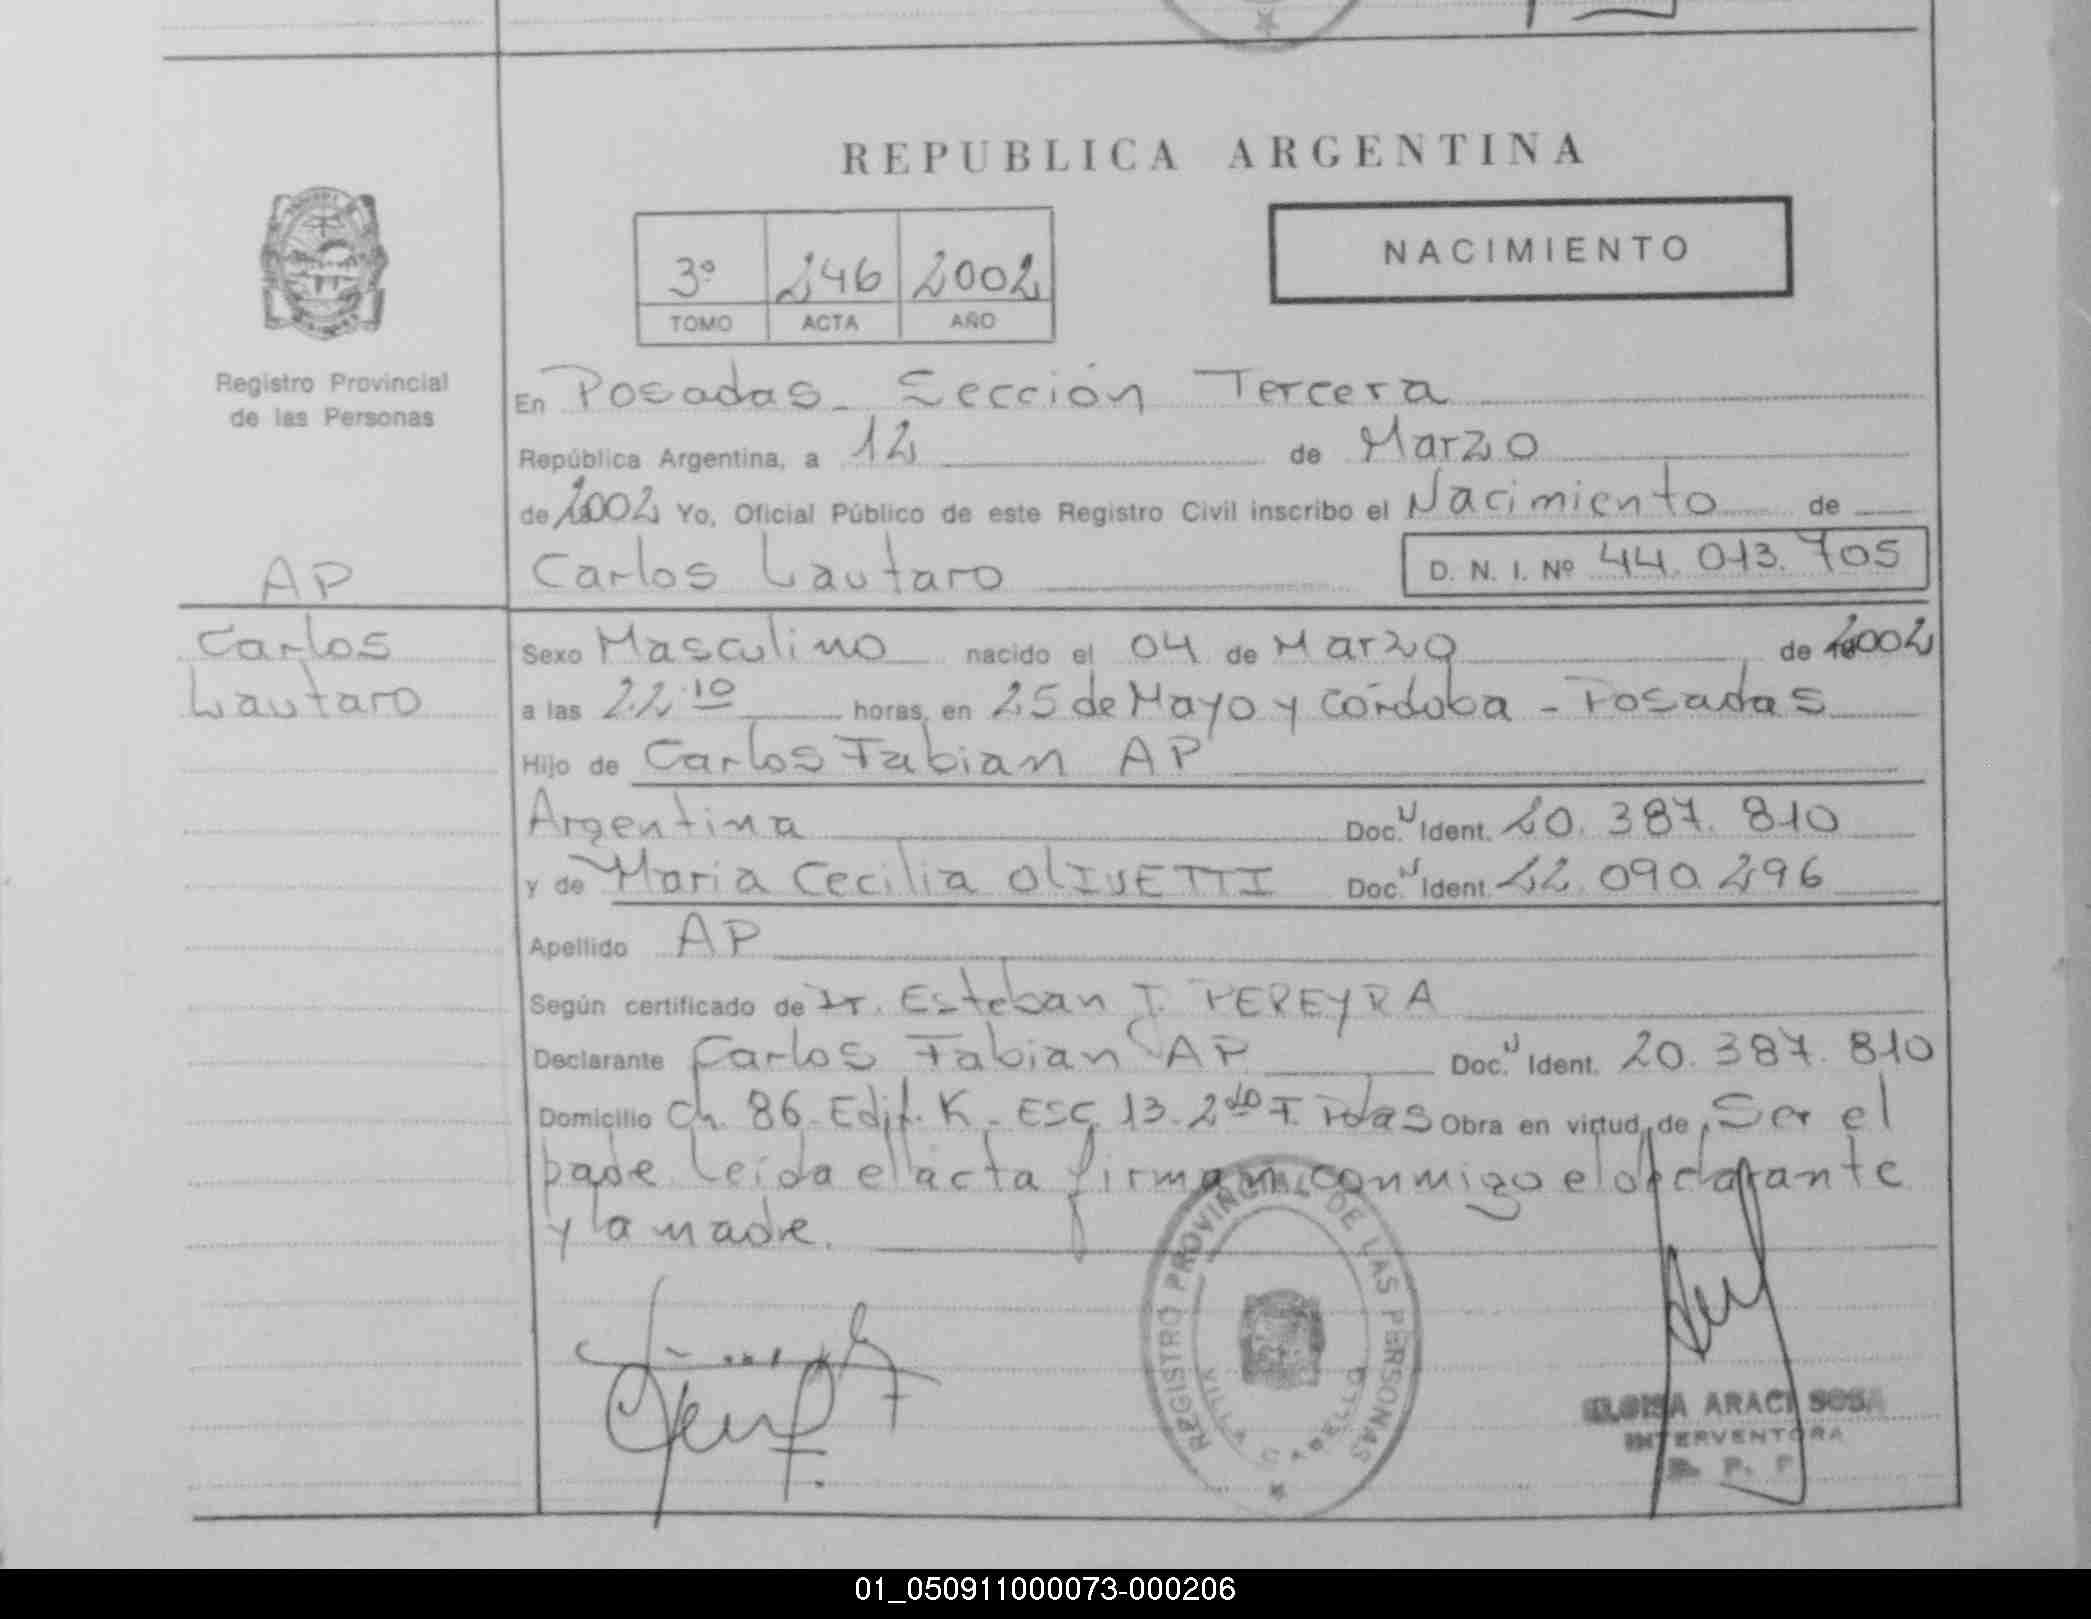 REPUBLICA ARGENTINA
NACIMIENTO
3º 246 2002
TOMO ACTA AÑO
Registro Provincial
de las Personas
En Posadas - Sección Tercera
República Argentina, a 12 de Marzo
de 2002 Yo, Oficial Público de este Registro Civil inscribo el Nacimiento de
AP
Carlos Lautaro D. N. I. Nº 44.013.705
Carlos
Lautaro
Sexo Masculino nacido el 04 de Marzo de 2002
a las 22.10 horas, en 25 de Mayo y Córdoba - Posadas
Hijo de Carlos Fabian AP
Argentina Doc. U Ident. 20.387.810
y de Maria Cecilia OLIVETTI Doc. U Ident. 22.090.296
Apellido AP
Según certificado de Dr. Esteban J. PEREYRA
Declarante Carlos Fabian AP Doc. U Ident. 20.387.810
Domicilio Ch. 86 - Edif. K - ESC. 13 - 2do F. Pdas Obra en virtud de Ser el
padre. Leída el acta firman conmigo el declarante
y la madre.
REGISTRO PROVINCIAL DE LAS PERSONAS
VILLA CABELLO
ELOISA ARACI SOSA
INTERVENTORA
R. P. P
01_050911000073-000206